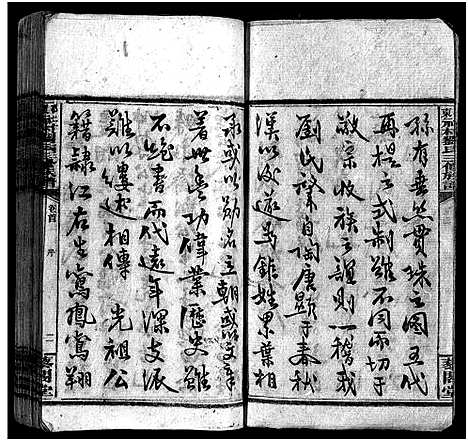 孫有垂然貫珠之圖五代
再提之式制雖不同而切于
敬宗收族之誼則一稽我
劉氏肇自陶唐顯于春秋
漢以後遂為鉅姓累葉相
承或以勛名立朝或以文章
著世豐功偉業歷史雖
不絕書而代遠年深支派
難以縷述相傳 光祖公
籍隸江右生鸞鳳鸞翔
卷首 序 二
藜閣堂